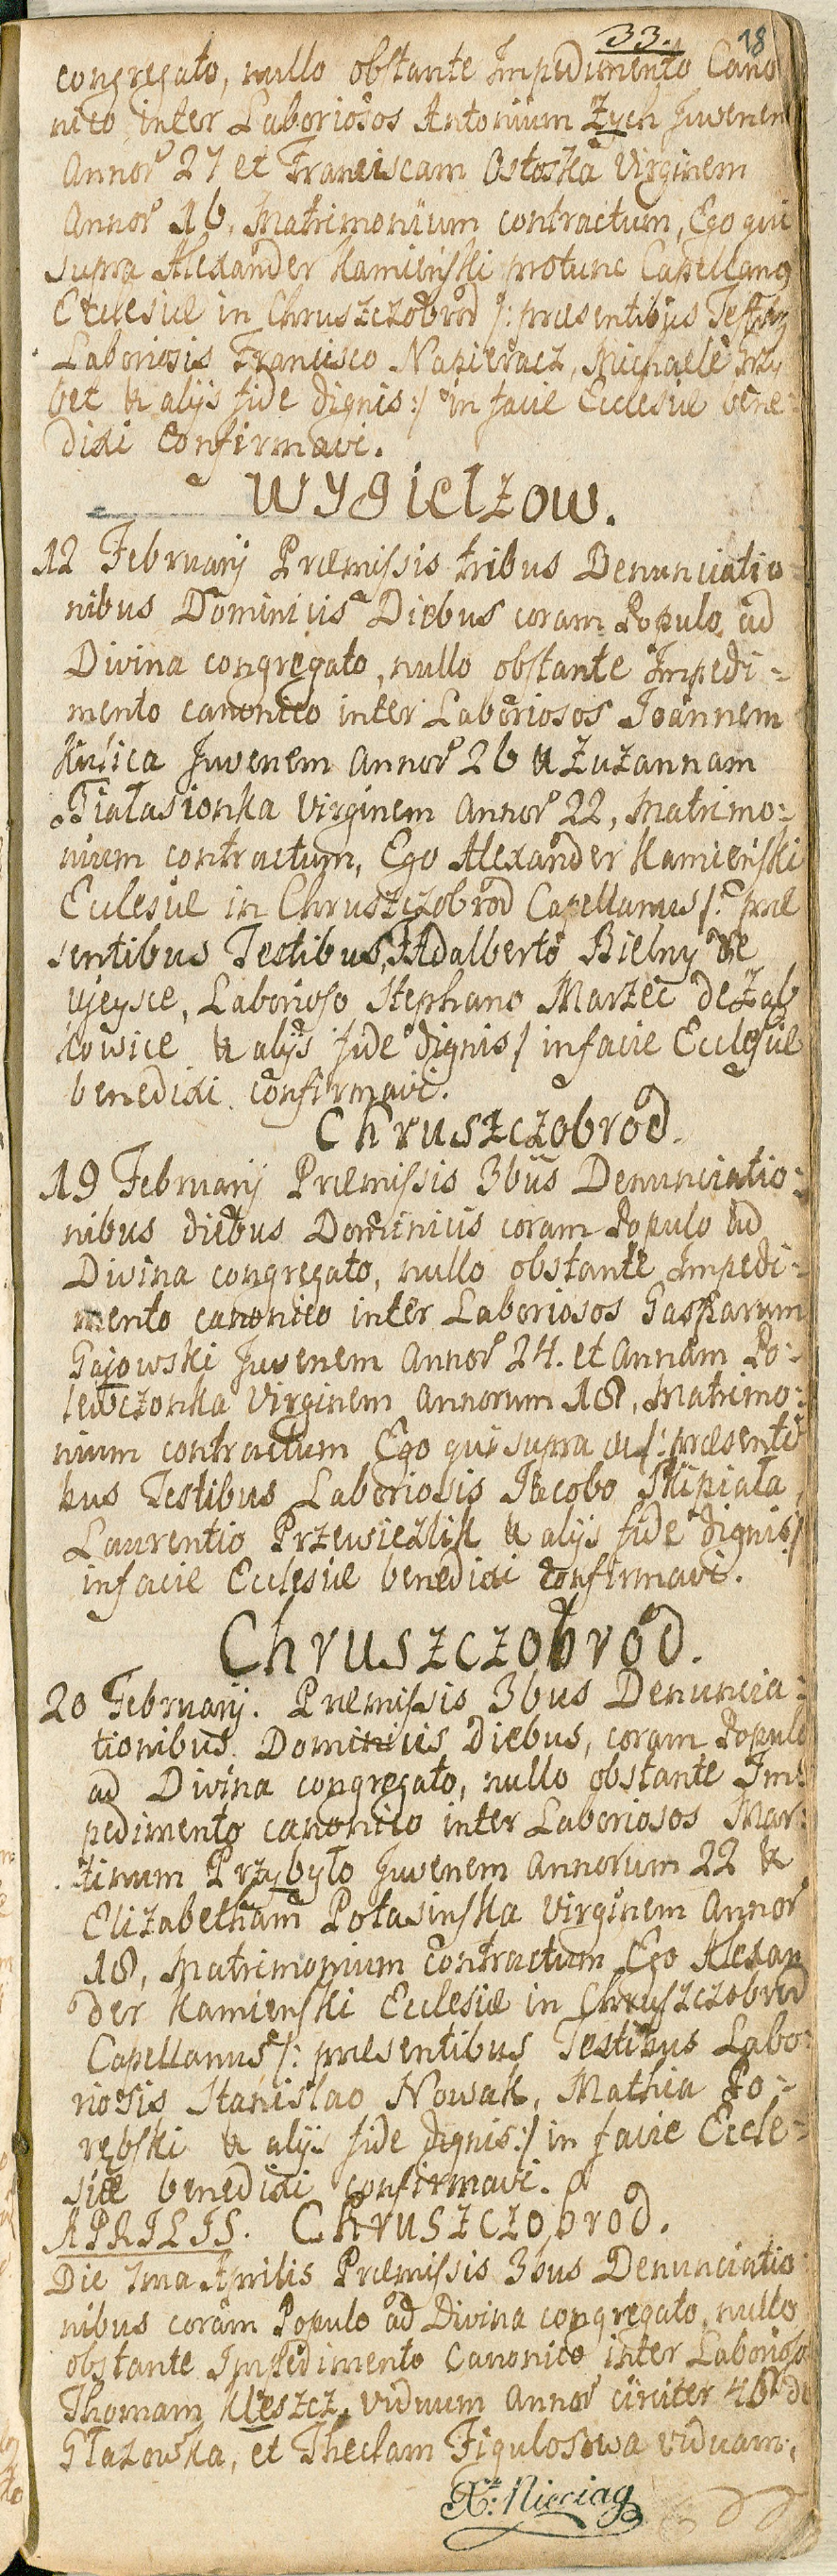 33. 18
congregato, nullo obstante Impedimento Cano
nico inter Laboriosos Antonium Zych Juvenem
Annor 27 et Franciscam Ostoska Virginem
Annor 16, Matrimonium contractum, Ego qui
supra Alexander Kamieński protunc Capellanus
Ecclesiæ in Chruszczobrod /: præsentibus Testibus
Laboriosis Francisco Napieracz, Michaele Przy
bet & alijs fide dignis :/ in facie Ecclesiæ bene=
dixi Confirmavi.
Wygielzow.
12 Februarij Præmissis tribus Denunciatio=
nibus Dominicis Diebus coram Populo ad
Divina congregato, nullo obstante Impedi=
mento canonico inter Laboriosos Joannem
Juvenem Annor 26 & Zuzannam
Fiałasionka Virginem Annor 22, Matrimo=
nium contractum, Ego Alexander Kamieński
Ecclesiæ in Chruszczobrod Capellanus /: præ
sentibus Testibus, Adalberto Bielny de
Ujeysce, Laborioso Stephano Marzec de Ząb
kowice & alijs fide dignis / in facie Ecclesiæ
benedixi confirmavi.
Chruszczobrod.
19 Februarij Præmissis 3bus Denunciatio=
nibus diebus Dominicis coram Populo ad
Divina congregato, nullo obstante Impedi=
mento canonico inter Laboriosos Gasparum
Gajowski Juvenem Annor 24. et Annam Po=
lewczonka Virginem Annorum 18, Matrimo=
nium contractum Ego qui supra /: præsenti
bus Testibus Laboriosis Jacobo Skipiała,
Laurentio Przewiezlik & alijs fide dignis :/
in facie Ecclesiæ benedixi confirmavi.
Chruszczobrod.
20 Februarij. Præmissis 3bus Denuncia=
tionibus Dominicis Diebus, coram Populo
ad Divina congregato, nullo obstante Im=
pedimento canonico inter Laboriosos Mar=
tinum Przybyło Juvenem Annorum 22 &
Elizabetham Potasinska Virginem Annor
18, Matrimonium contractum Ego Alexan
der Kamienski Ecclesiæ in Chruszczobrod
Capellanus /: præsentibus Testibus Labo=
riosis Stanislao Nowak, Mathia Po=
rębski & alijs fide dignis :/ in facie Eccle=
siæ benedixi confirmavi.
APRILIS. Chruszczobrod.
Die 1ma Aprilis Præmissis 3bus Denunciatio=
nibus coram Populo ad Divina congregato, nullo
obstante Impedimento Canonico inter Laborioso
Thomam Kleszcz, viduum Annor circiter 46 de
Głazowka, et Theclam Figulosowa viduam,
X: Nieciag